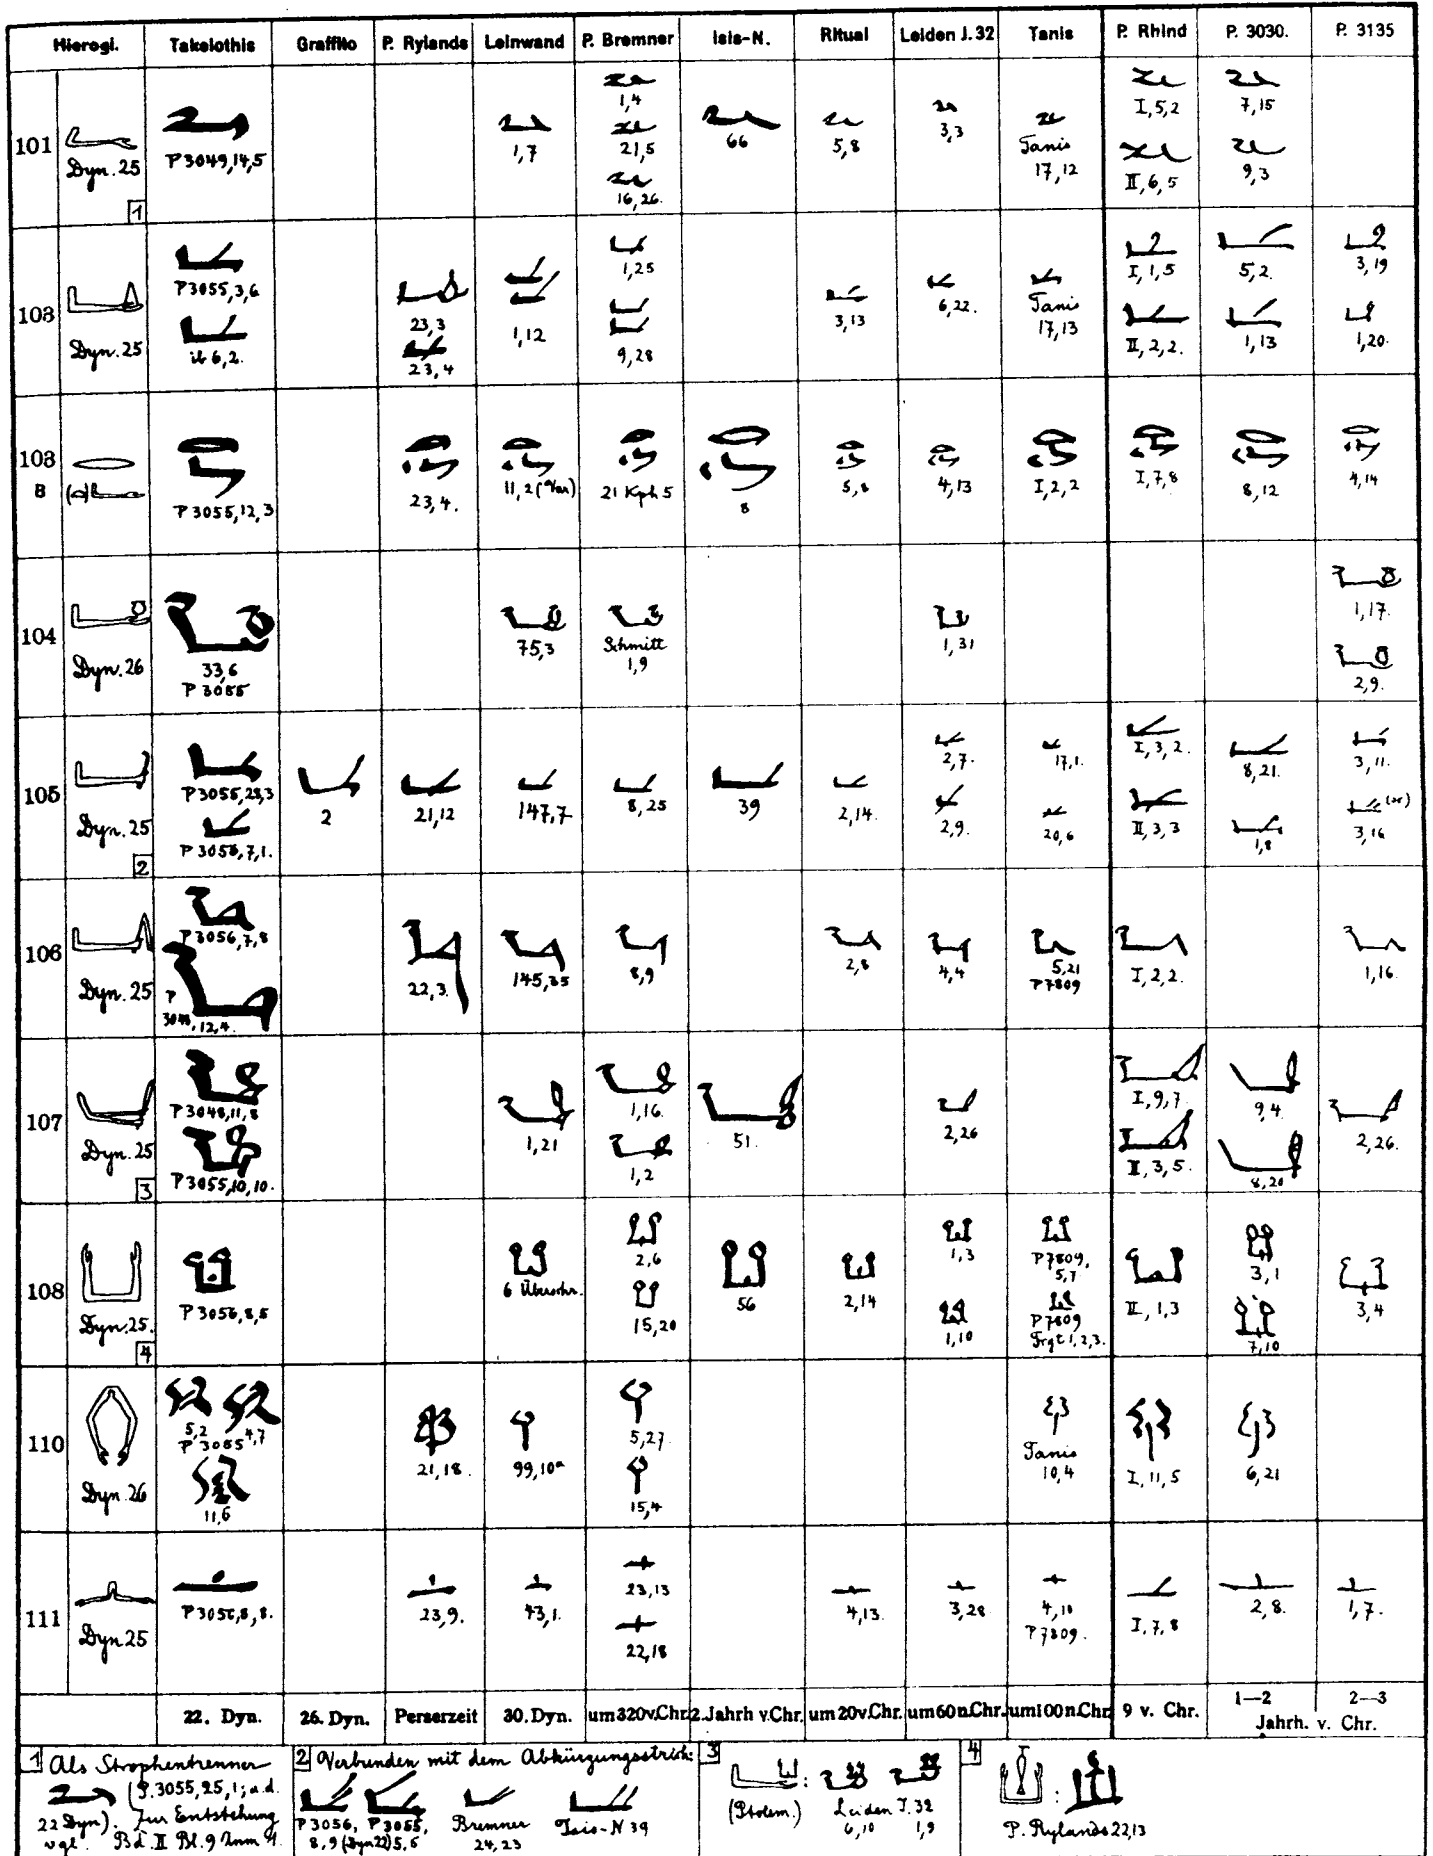 Hierogl. Takelothis Graffito P. Rylands Leinwand P. Bremner Isis-N. Ritual Leiden J. 32 Tanis P. Rhind P. 3030. P. 3135
101 Dyn. 25 1 P3049,14,5 1,7 1,4 21,5 16,26. 66 5,8 3,3 Tanis 17,12 I,5,2 II,6,5 7,15 9,3
103 Dyn. 25 P3055,3,6 ib 6,2. 23,3 23,4 1,12 1,25 9,28 3,13 6,22. Tanis 17,13 I,1,5 II,2,2. 5,2. 1,13 3,19 1,20.
103 B P3055,12,3 23,4. 11,2 (Var) 21 Kph 5 8 5,8 4,13 I,2,2 I,7,8 8,12 4,14
104 Dyn. 26 33,6 P3055 75,3 Schmitt 1,9 1,31 1,17. 2,9.
105 Dyn. 25 2 P3055,23,3 P3056,7,1. 2 21,12 147,7 8,25 39 2,14. 2,7. 2,9. 17,1. 20,6 I,3,2. II,3,3 8,21. 1,8 3,11. 3,16
106 Dyn. 25 P3056,7,8 P 3048,12,4. 22,3. 145,35 8,9 2,8 4,4 5,21 P7809 I,2,2. 1,16.
107 Dyn. 25 3 P3048,11,8 P3055,10,10. 1,21 1,16. 1,2 51. 2,26 I,9,7. II,3,5. 9,4. 8,20 2,26.
108 Dyn. 25. 4 P3056,8,5 6 Überschr. 2,6 15,20 56 2,14 1,3 1,10 P7809, 5,7 P7809 Frgt 1,2,3. II,1,3 3,1 7,10 3,4
110 Dyn. 26 5,2 P3055 4,7 11,6 21,18. 99,10a 5,27. 15,4 Tanis 10,4 I,11,5 6,21
111 Dyn. 25 P3056,8,8. 23,9. 43,1. 23,13 22,18 4,13. 3,28 4,10 P7809. I,7,8 2,8. 1,7.
22. Dyn. 26. Dyn. Perserzeit 30. Dyn. um 320 v. Chr. 2. Jahrh v. Chr. um 20 v. Chr. um 60 n. Chr. um 100 n. Chr. 9 v. Chr. 1—2 2—3 Jahrh. v. Chr.
1 Als Strophentrenner
(P.3055,25,1; a.d.
22 Dyn). Zur Entstehung
vgl. Bd. II Bl. 9 Anm 4.
2 Verbunden mit dem Abkürzungsstrich:
P3056, 8,9 (Dyn 22) P3055, 5,6 Bremner 24,23 Isis-N 39
3 (Ptolem.) : Leiden J. 32 6,10 1,9
4 : P. Rylands 22,13